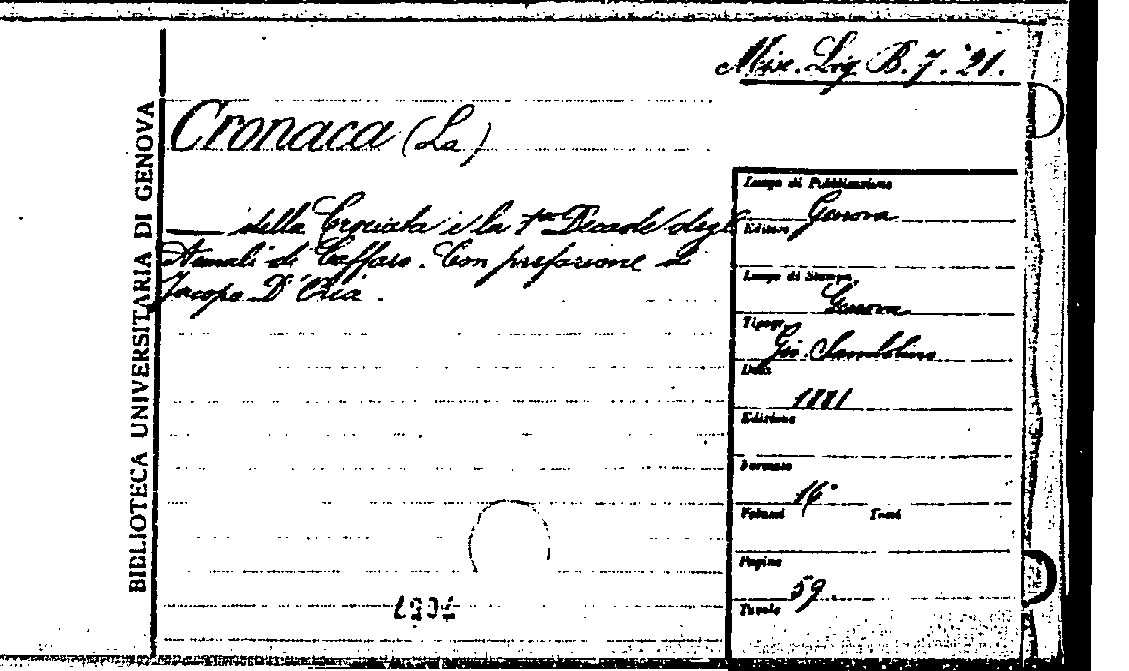 Misc. Lig. B. 7. 21.
BIBLIOTECA UNIVERSITARIA DI GENOVA
Cronaca (La)
—— della Crociata e la 1ma Decade degli
Annali di Caffaro. Con prefazione di
Jacopo D'Oria.
Luogo di Pubblicazione
Genova
Editore
Luogo di Stampa
Genova
Tipogr.
Gio. Sambolino
Data
1881
Edizione
Formato
16°
Volumi Tomi
Pagine
59
Tavole